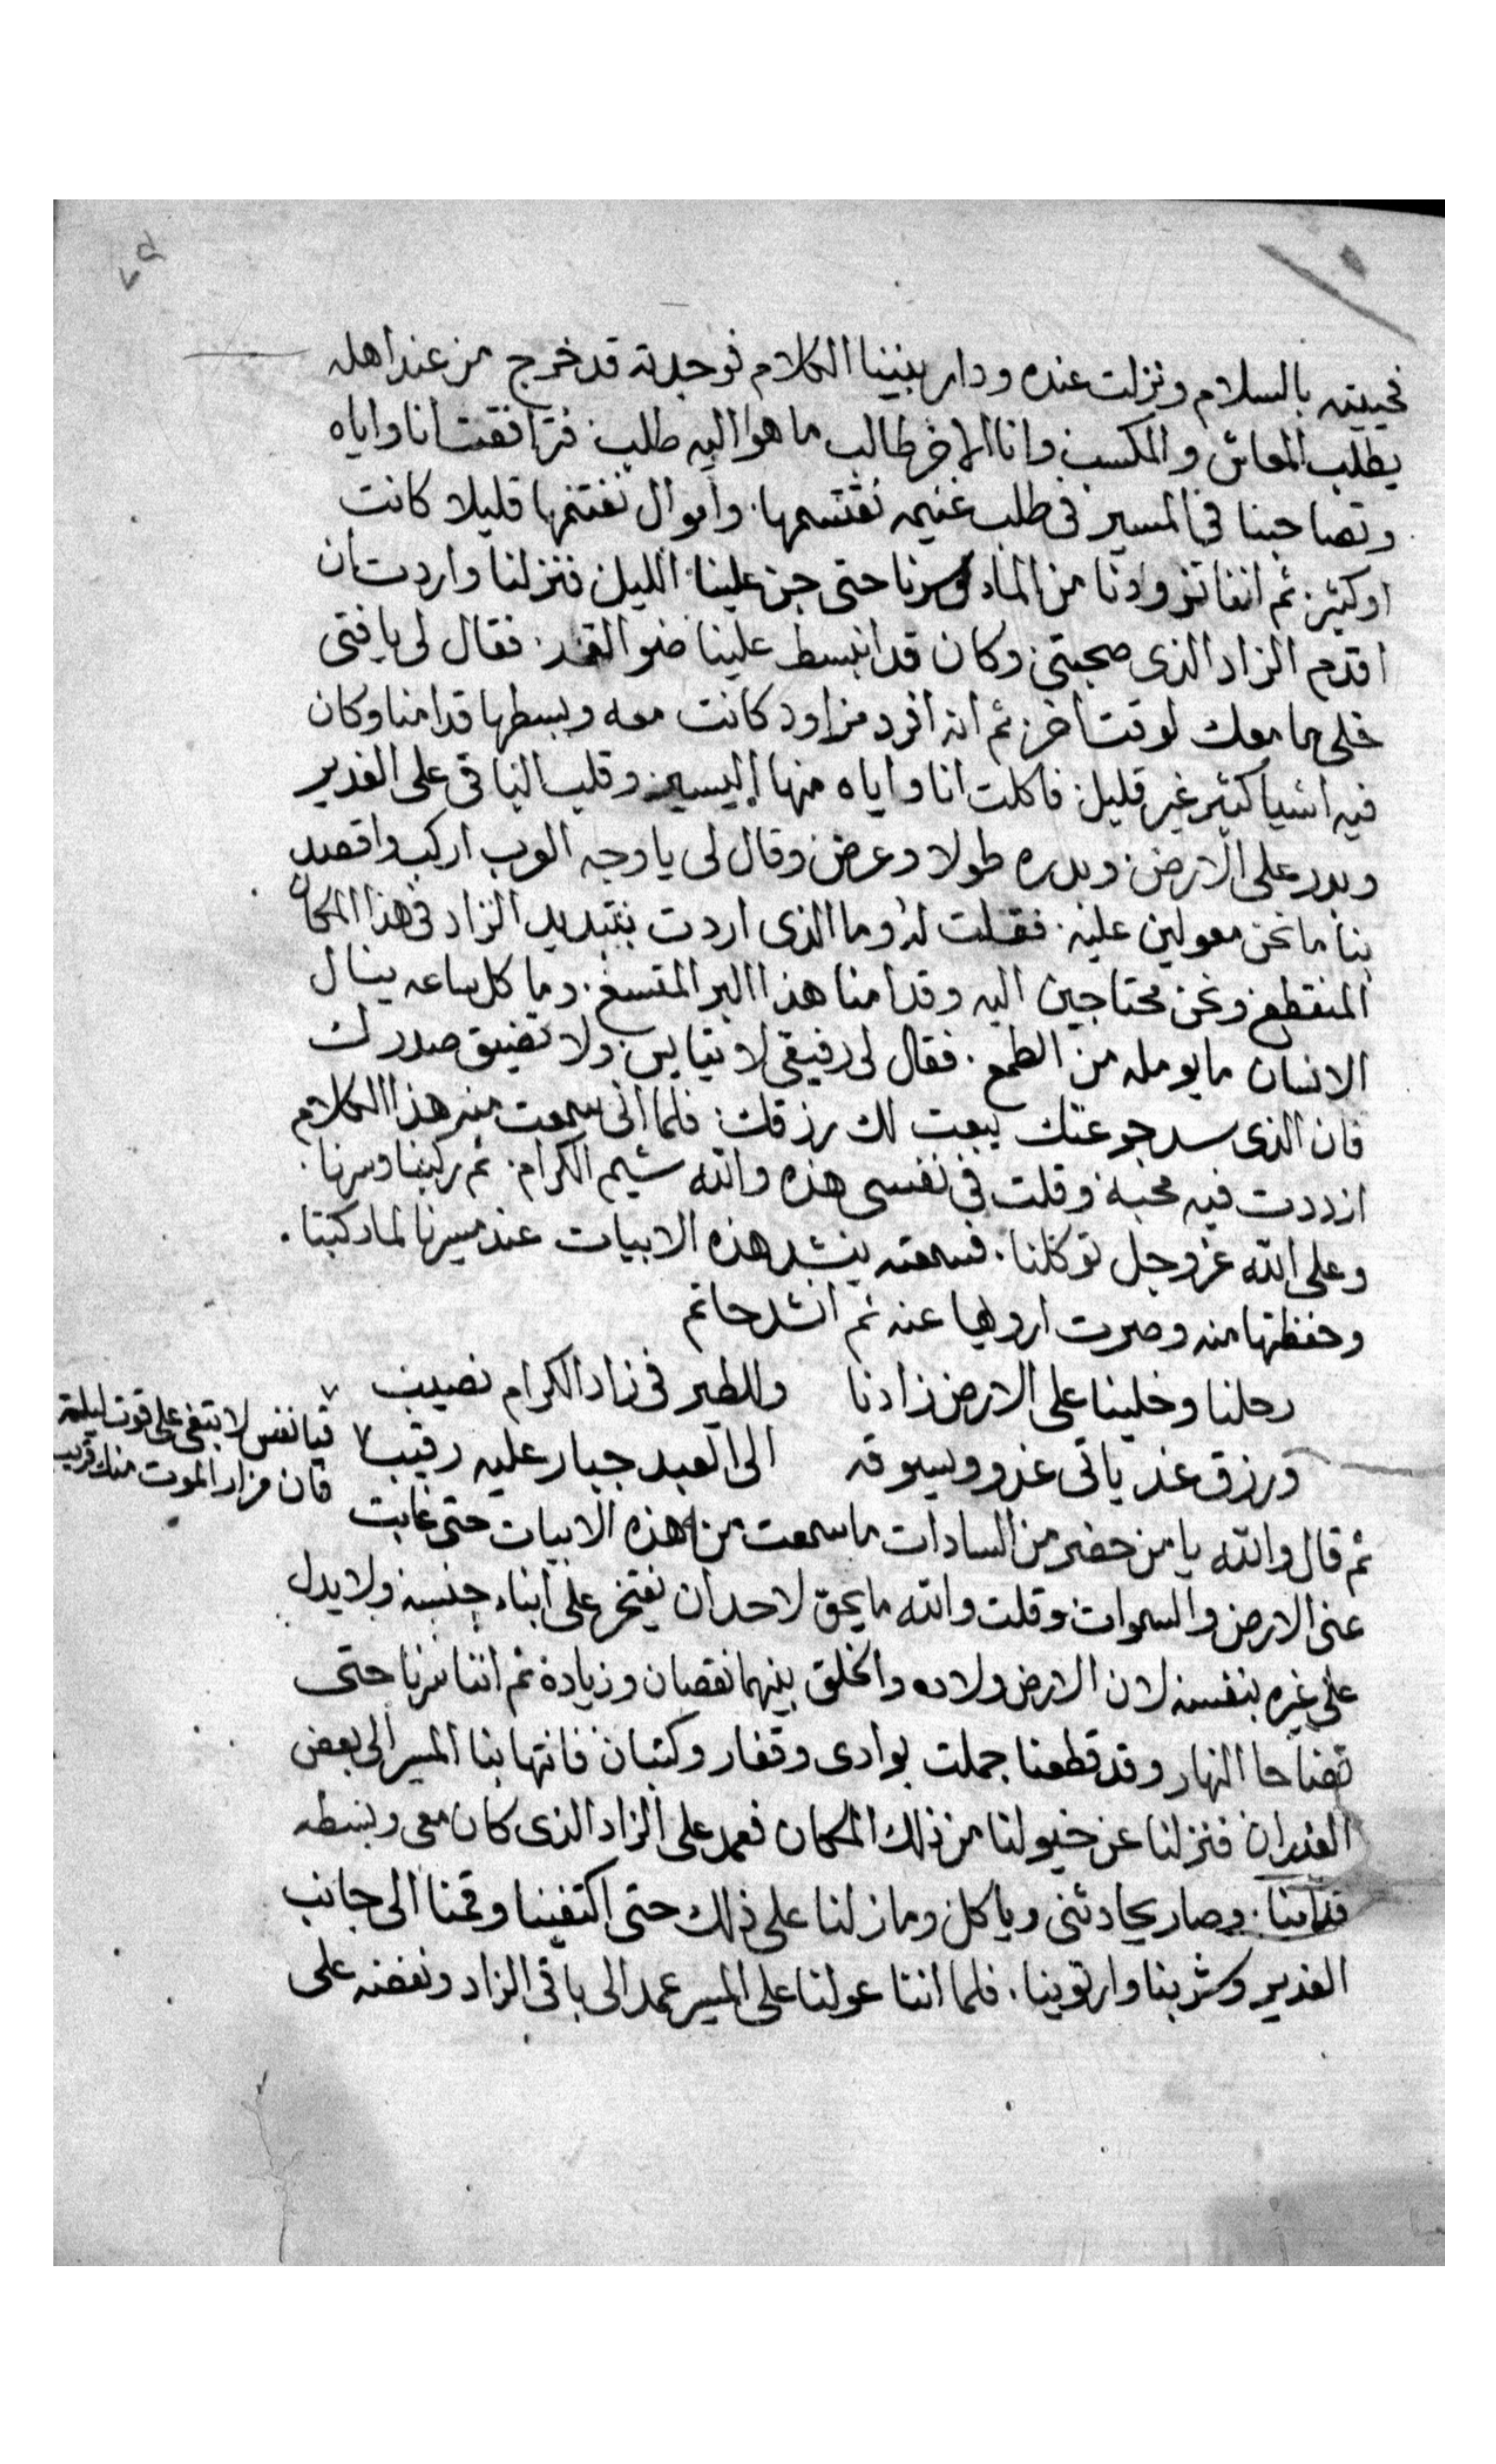 فحييته بالسلام ونزلت عنده ودار بيننا الكلام فوجدته قد خرج من عند اهله
يطلب المعاش والمكسب وانا الاخر طالب ما هو اليه طلب فترافقت انا واياه
وتصاحبنا في المسير في طلب غنيمه نقتسمها واموال نغتنمها قليلا كانت
او كثير ثم اننا تزودنا من الماء وسرنا حتى جن علينا الليل فنزلنا واردت ان
اقدم الزاد الذى صحبتى وكان قد انبسط علينا ضو القمر فقال لى يا فتى
خلى ما معك لوقت اخر ثم انه افرد مزاود كانت معه وبسطها قدامنا وكان
فيه اشيا كثير غير قليل فاكلت انا واياه منها اليسير وقلب الباقى على الغدير
وبدد على الارض وبدره طولا وعرض وقال لى يا وجه العرب اركب واقصد
بنا ما نحن معولين عليه فقلت له وما الذى اردت بتبديد الزاد فى هذا المكان
المنقطع ونحن محتاجين اليه وقدامنا هذا البر المتسع وما كل ساعه ينال
الانسان ما يومله من الطمع فقال لى رفيقى لا تيايس ولا تضيق صدرك
فان الذى سد جوعتك يبعت لك رزقك فلما انى سمعت منه هذا الكلام
ازددت فيه محبة وقلت فى نفسى هذه والله شيم الكرام ثم ركبنا وسرنا
وعلى الله عز وجل توكلنا فسمعته ينشد هذه الابيات عند مسيرنا لما ركبنا
وحفظتها منه وصرت ارويها عنه ثم انشد حاتم
رحلنا وخلينا على الارض زادنا وللطير فى زاد الكرام نصيب
ورزق غد ياتى غدو ويسوقه الى العبد جبار عليه رقيب
فيا نفس لا بتغى على قوت ليلة
فان مزار الموت منك قريب
ثم قال والله يا من حضر من السادات ما سمعت منه هذه الابيات حتى غابت
عنى الارض والسموات وقلت والله ما يحق لاحد ان يفتخر على ابناء جنسه ولا يدل
على غيره بنفسه لان الارض ولاده والخلق بينهما نقصان وزيادة ثم اننا سرنا حتى
تضاحا النهار وقد قطعنا جملت بوادى وقفار وكتبان فانتها بنا المسير الى بعض
الغدران فنزلنا عن خيولنا من ذلك المكان فعمد على الزاد الذى كان معى وبسطه
قدامنا وصار يحادثنى وياكل وما زلنا على ذلك حتى اكتفينا وقمنا الى جانب
الغدير وشربنا وارتوينا فلما اننا عولنا على المسير عمد الى باقى الزاد ونفضه على